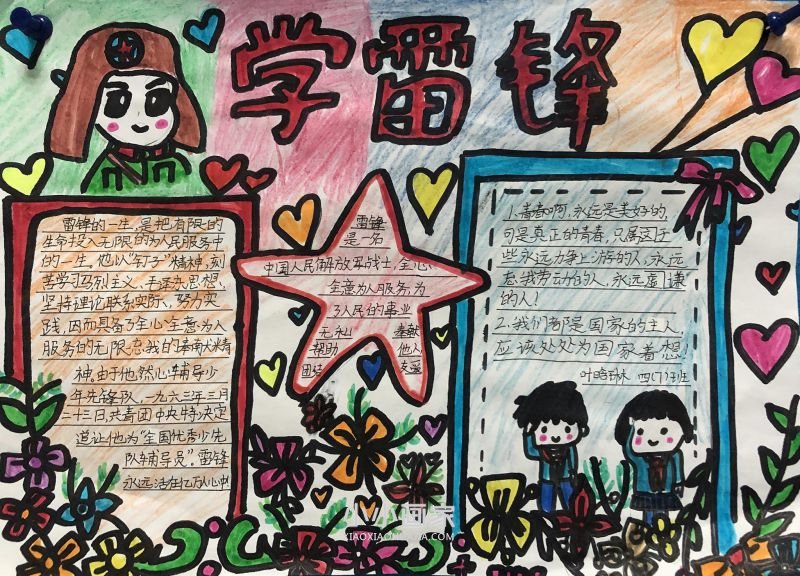 学雷锋
雷锋的一生,是把有限的
生命投入无限的为人民服务中
的一生。他以“钉子”精神,刻
苦学习马列主义、毛泽东思想、
坚持理论联系实际、努力实
践,因而具备了全心全意为人
服务的无限忘我的奉献大精
神。由于他热心辅导少
年先锋队,一九六三年三月
二十三日,共青团中央特决定
追认他为“全国优秀少先
队辅导员”。雷锋
永远活在亿万人心中
雷锋
是一名
中国人民解放军战士,全心
全意为人服务为
了人民的事业
无私 奉献
帮助 他人
团结 友爱
1.青春啊,永远是美好的,
可是真正的青春,只属于
些永远力争上游的人,永远
忘我劳动的人,永远虚谦
的人!
2.我们都是国家的主人,
应该处处为国家着想
四(7)班
小小画家
XIAOXIAOHUAJIA.COM